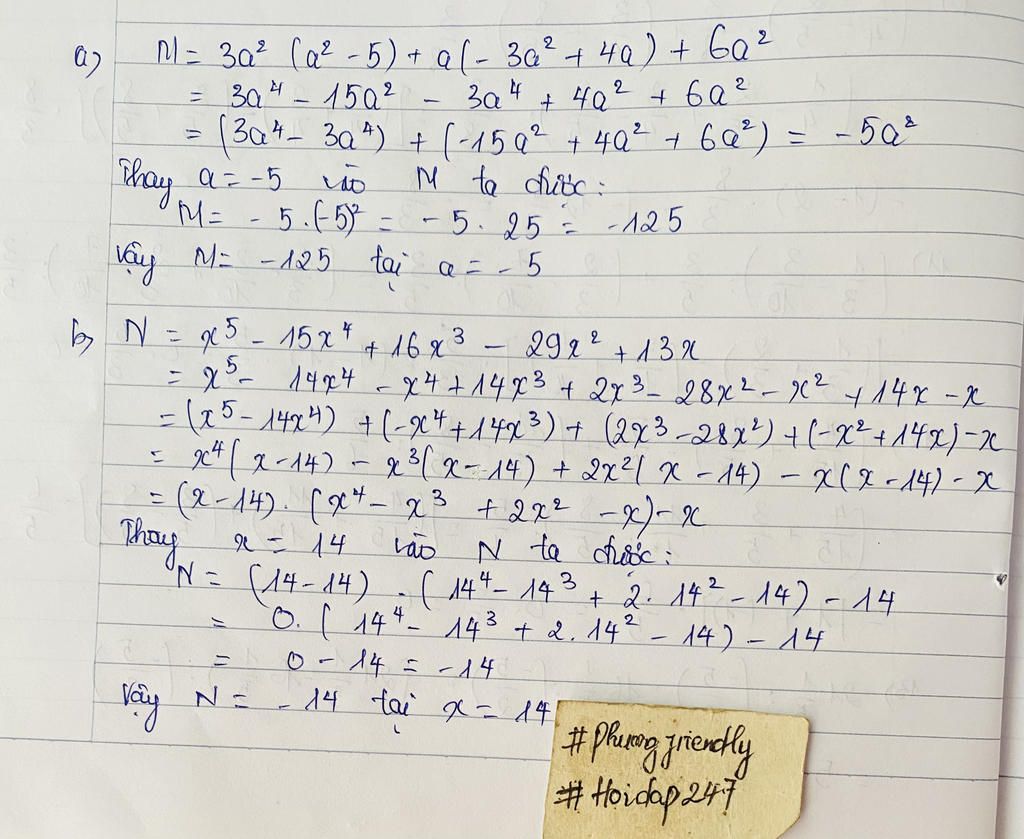 a) M = 3a² (a² - 5) + a(- 3a² + 4a) + 6a²
= 3a⁴ - 15a² - 3a⁴ + 4a² + 6a²
= (3a⁴ - 3a⁴) + (-15a² + 4a² + 6a²) = -5a²
Thay a = -5 vào M ta được:
M = - 5 . (-5)² = - 5 . 25 = -125
Vậy M = -125 tại a = - 5
b) N = x⁵ - 15x⁴ + 16x³ - 29x² + 13x
= x⁵ - 14x⁴ - x⁴ + 14x³ + 2x³ - 28x² - x² + 14x - x
= (x⁵ - 14x⁴) + (-x⁴ + 14x³) + (2x³ - 28x²) + (-x² + 14x) - x
= x⁴ ( x - 14) - x³ (x - 14) + 2x² ( x - 14) - x (x - 14) - x
= (x - 14) . (x⁴ - x³ + 2x² - x) - x
Thay x = 14 vào N ta được:
N = (14 - 14) . ( 14⁴ - 14³ + 2. 14² - 14) - 14
= 0. ( 14⁴ - 14³ + 2. 14² - 14) - 14
= 0 - 14 = -14
Vậy N = - 14 tại x = 14
# Phuong friendly
# Hoidap247